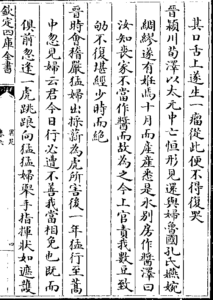 其口舌上遂生一瘤從此便不得復哭
晉潁川荀澤以太元中亡恒形見還與婦魯國孔氏嬿婉
綢繆遂有娠焉十月而産産悉是水别房作醬澤曰
汝知喪家不當作醬而故為之今上官責我數豆致
劬不復堪經少時而絶
晉時會稽嚴猛婦出採薪為虎所害後一年猛行至蒿
中忽見婦云君今日行必遭不善我當相免也既而
俱前忽逢一虎跳踉向猛猛婦舉手指撝狀如遮護
欽定四庫全書